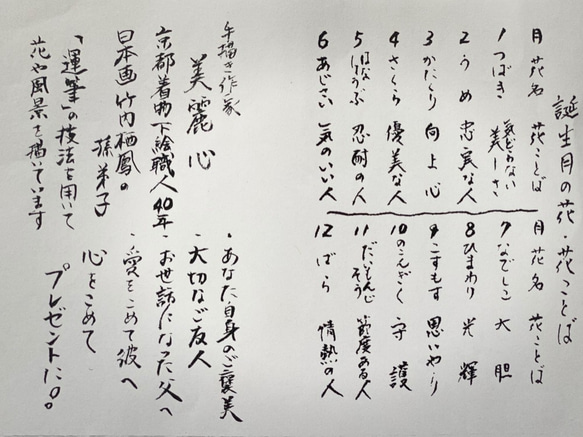 誕生月の花・花ことば
月 花名 花ことば
1 つばき 気どらない美しさ
2 うめ 忠実な人
3 かたくり 向上心
4 さくら 優美な人
5 はなしょうぶ 忍耐の人
6 あじさい 気のいい人
月 花名 花ことば
7 なでしこ 大胆
8 ひまわり 光輝
9 こすもす 思いやり
10 のこんぎく 守護
11 だいもんじそう 節度ある人
12 ばら 情熱の人
手描き作家
美麗 心
京都着物下絵職人40年
日本画 竹内栖鳳の
孫弟子
「運筆」の技法を用いて
花や風景を描いています
・あなた自身のご褒美
・大切なご友人
・お世話になった父へ
・愛をこめて彼へ
心をこめて
プレゼントに。